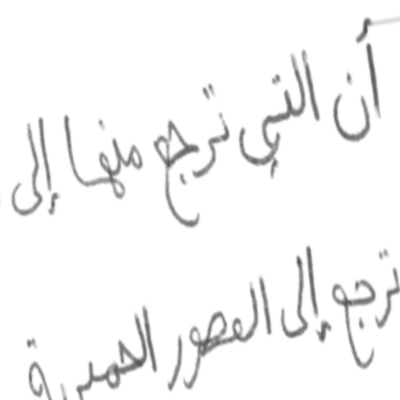 أن التي ترجع منها إلى
ترجع إلى العصور الحميرية